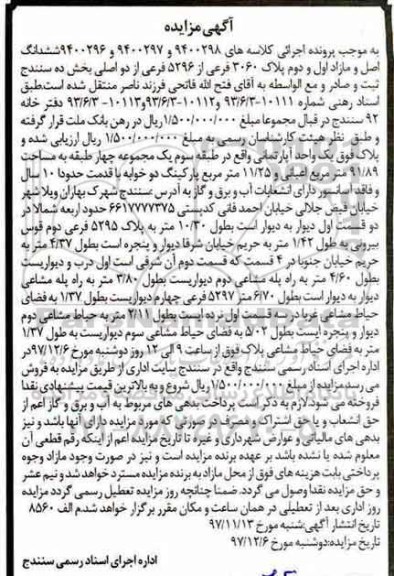 آگهی مزایده
به موجب پرونده اجرائی کلاسه های ۹۴۰۰۲۹۸ و ۹۴۰۰۲۹۷ و ۹۴۰۰۲۹۶ششدانگ
اصل و مازاد اول و دوم پلاک ۳۰۶۰ فرعی از ۵۲۹۶ فرعی از دو اصلی بخش ده سنندج
ثبت و صادر و مع الواسطه به آقای فتح الله فاتحی فرزند ناصر منتقل شده است.طبق
اسناد رهنی شماره ۱۰۱۱۱-۹۳/۶/۳ و۱۰۱۱۲-۹۳/۶/۳و۱۰۱۱۳- ۹۳/۶/۳ دفتر خانه
۹۲ سنندج در قبال مجموعا مبلغ ۱/۵۰۰/۰۰۰/۰۰۰ریال در رهن بانک ملت قرار گرفته
و طبق نظر هیئت کارشناسان رسمی به مبلغ ۱/۵۰۰/۰۰۰/۰۰۰ ریال ارزیابی شده و
پلاک فوق یک واحد آپارتمانی واقع در طبقه سوم یک مجموعه چهار طبقه به مساحت
۹۱/۸۹ متر مربع اعیانی و ۱۱/۲۵ متر مربع پارکینگ دو خوابه با قدمت حدودا ۱۰ سال
و فاقد آسانسور دارای انشعابات آب و برق و گاز به آدرس :سنندج شهرک بهاران ویلا شهر
خیابان فیض جلالی خیابان احمد فانی کدپستی ۶۶۱۷۷۷۷۳۷۵ حدود اربعه شمالا در
دو قسمت اول دیوار به دیوار است بطول ۱۰/۳۰ متر به پلاک ۵۲۹۵ فرعی دوم قوس
بیرونی به طول ۱/۴۲ متر به حریم خیابان شرقا دیوار و پنجره است بطول ۴/۳۷ متر به
حریم خیابان جنوبا در ۴ قسمت که قسمت دوم آن شرقی است اول درب و دیوارست
بطول ۴/۶۰ متر به راه پله مشاعی دوم دیواریست بطول ۳/۸۰ متر به راه پله مشاعی
دیوار به دیوار است بطول ۶/۷۰ متر ۵۲۹۷ فرعی چهارم دیواریست بطول ۱/۳۷ به فضای
حیاط مشاعی غربا در سه قسمت اول نرده ایست بطول ۲/۱۱ متر به حیاط مشاعی دوم
دیوار و پنجره ایست بطول ۵/۰۲ به فضای حیاط مشاعی سوم دیواریست به طول ۱/۳۷
متر به فضای حیاط مشاعی پلاک فوق از ساعت ۹ الی ۱۲ روز دوشنبه مورخ ۹۷/۱۲/۶در
اداره اجرای اسناد رسمی سنندج واقع در سنندج سایت اداری از طریق مزایده به فروش
می رسد.مزایده از مبلغ ۱/۵۰۰/۰۰۰/۰۰۰ ریال شروع و به بالاترین قیمت پیشنهادی نقدا
فروخته می شود.لازم به ذکر است پرداخت بدهی های مربوط به آب و برق و گاز اعم از
حق انشعاب و یا حق اشتراک و مصرف در صورتی که مورد مزایده دارای آنها باشد و نیز
بدهی های مالیاتی و عوارض شهرداری و غیره تا تاریخ مزایده اعم از اینکه رقم قطعی آن
معلوم شده یا نشده باشد بر عهده برنده مزایده است و نیز در صورت وجود مازاد وجوه
پرداختی بابت هزینه های فوق از محل مازاد به برنده مزایده مسترد خواهد شد و نیم عشر
و حق مزایده نقدا وصول می گردد. ضمنا چنانچه روز مزایده تعطیل رسمی گردد مزایده
روز اداری بعد از تعطیلی در همان ساعت و مکان مقرر برگزار خواهد شد.م الف ۸۵۶۰
تاریخ انتشار آگهی:شنبه مورخ ۹۷/۱۱/۱۳
تاریخ مزایده:دوشنبه مورخ ۹۷/۱۲/۶
اداره اجرای اسناد رسمی سنندج